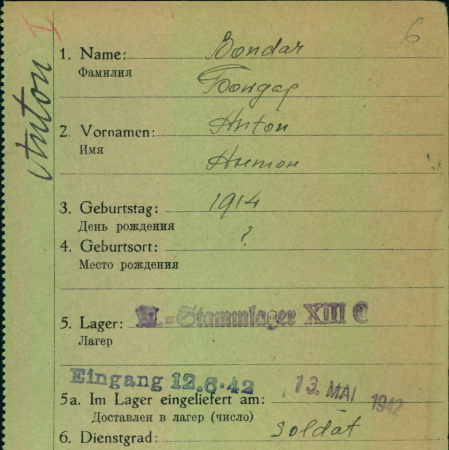 Anton
I
6
1. Name: Bondar
Фамилия Бондар
2. Vornamen: Anton
Имя Антон
3. Geburtstag: 1914
День рождения
4. Geburtsort: ?
Место рождения
5. Lager: M.-Stammlager XIII C
Лагер
Eingang 12.6.42 13. MAI 1942
5a. Im Lager eingeliefert am:
Доставлен в лагер (число)
6. Dienstgrad: Soldat